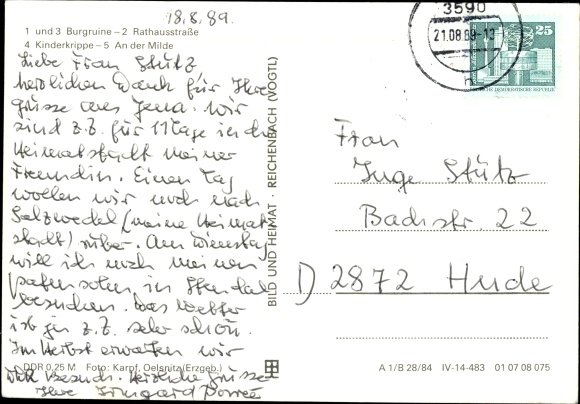 18.8.89.
1 und 3 Burgruine – 2 Rathausstraße
4 Kinderkrippe – 5 An der Milde
Liebe Frau Stütz
herzlichen Dank für Ihre
grüsse aus Jena. Wir
sind z.Z. für 11 Tage in der
Heimatstadt meiner
Freundin. Einen Tag
wollen wir noch nach
Salzwedel (meine Heimat
stadt) rüber. Am Dienstag
will ich noch meinen
patensohn in Stendal
besuchen. Das Wetter
ist ja z.Z. sehr schön.
Im Herbst erwarten wir
Besuch. Herzliche grüsse
Ihre Irmgard
DDR 0,25 M Foto: Karpf, Oelsnitz (Erzgeb.)
BILD UND HEIMAT · REICHENBACH (VOGTL)
3590
21.08.89-13
h
25
DEUTSCHE DEMOKRATISCHE REPUBLIK
Frau
Inge Stütz
Bachstr. 22
D 2872 Hude
A 1/B 28/84 IV-14-483 01 07 08 075